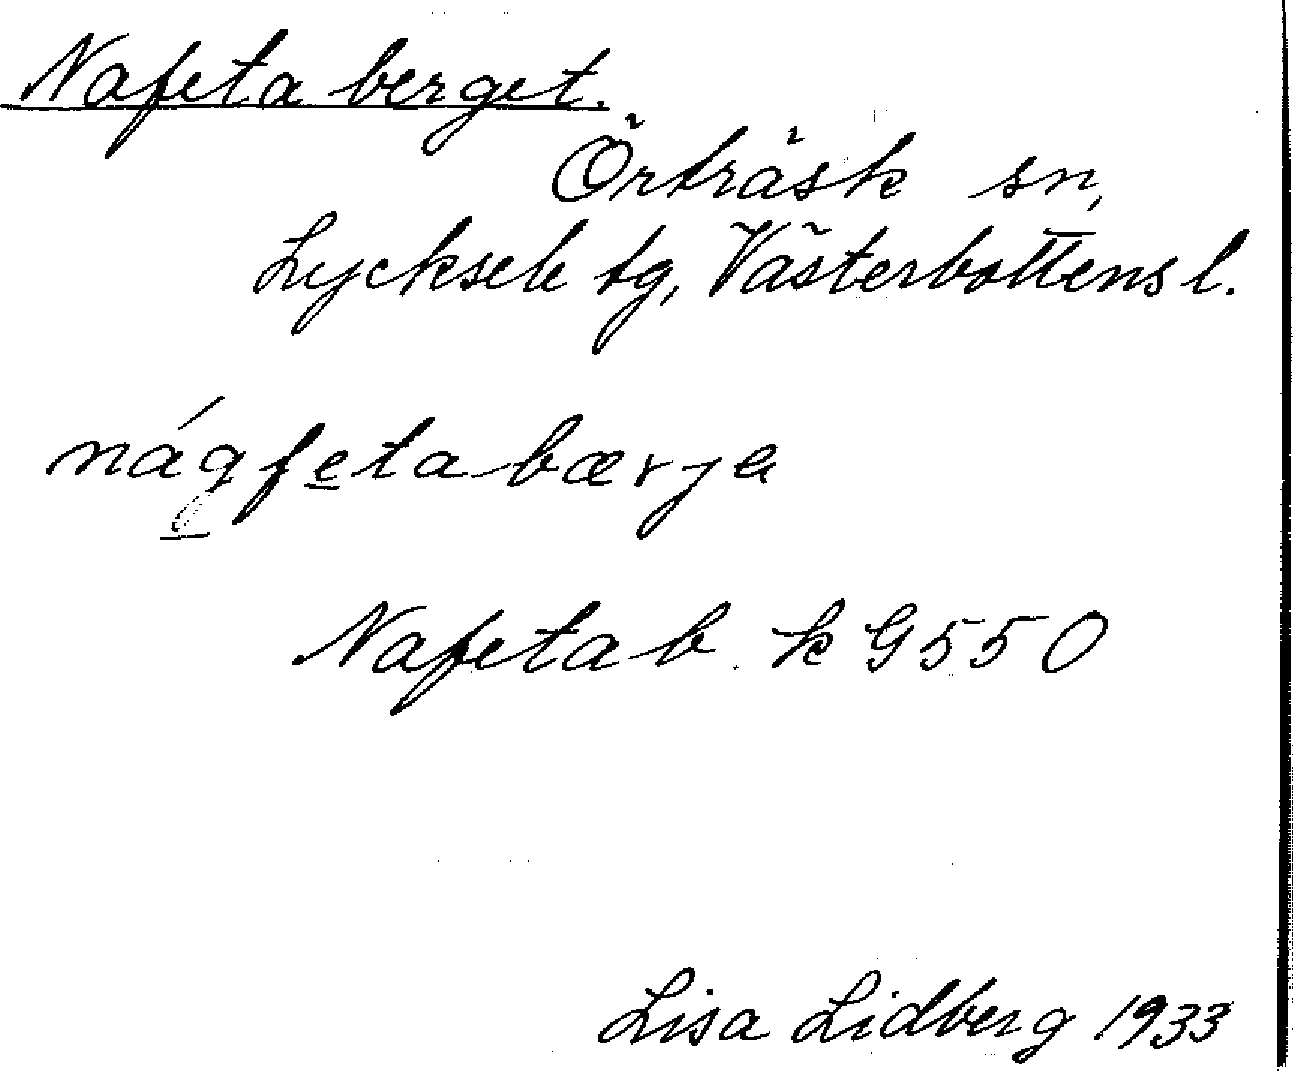 Nafeta berget.
Örträsk sn,
Lycksele tg, Västerbottens l.
nágfeta bærja
Nafeta b. k G550
Lisa Lidberg 1933